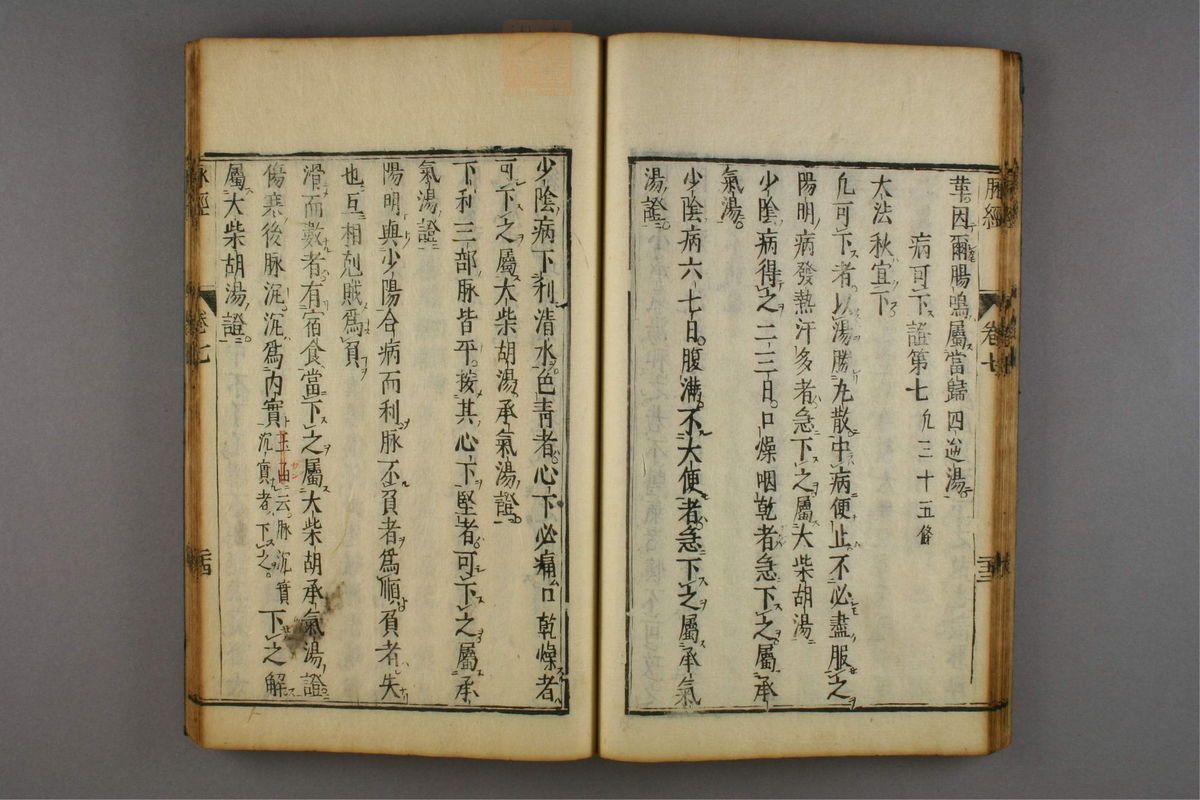 脉經 卷七 二十三
葷因爾腸鳴屬當歸四逆湯
病可下證第七 凡三十五條
大法秋宜下
凡可下者以湯勝丸散中病便止不必盡服之
陽明病發熱汗多者急下之屬大柴胡湯
少陰病得之二三日口燥咽乾者急下之屬承
氣湯
少陰病六七日腹滿不大便者急下之屬承氣
湯證
少陰病下利清水色青者心下必痛口乾燥者
可下之屬大柴胡湯承氣湯證
下利三部脉皆平按其心下堅者可下之屬承
氣湯證
陽明與少陽合病而利脉不負者爲順負者失
也互相剋賊爲負
滑而數者有宿食當下之屬大柴胡承氣湯證
傷寒後脉沉沉爲內實玉函云脉沉實沉實者下之下之解
屬大柴胡湯證
脉經 卷七 二十四